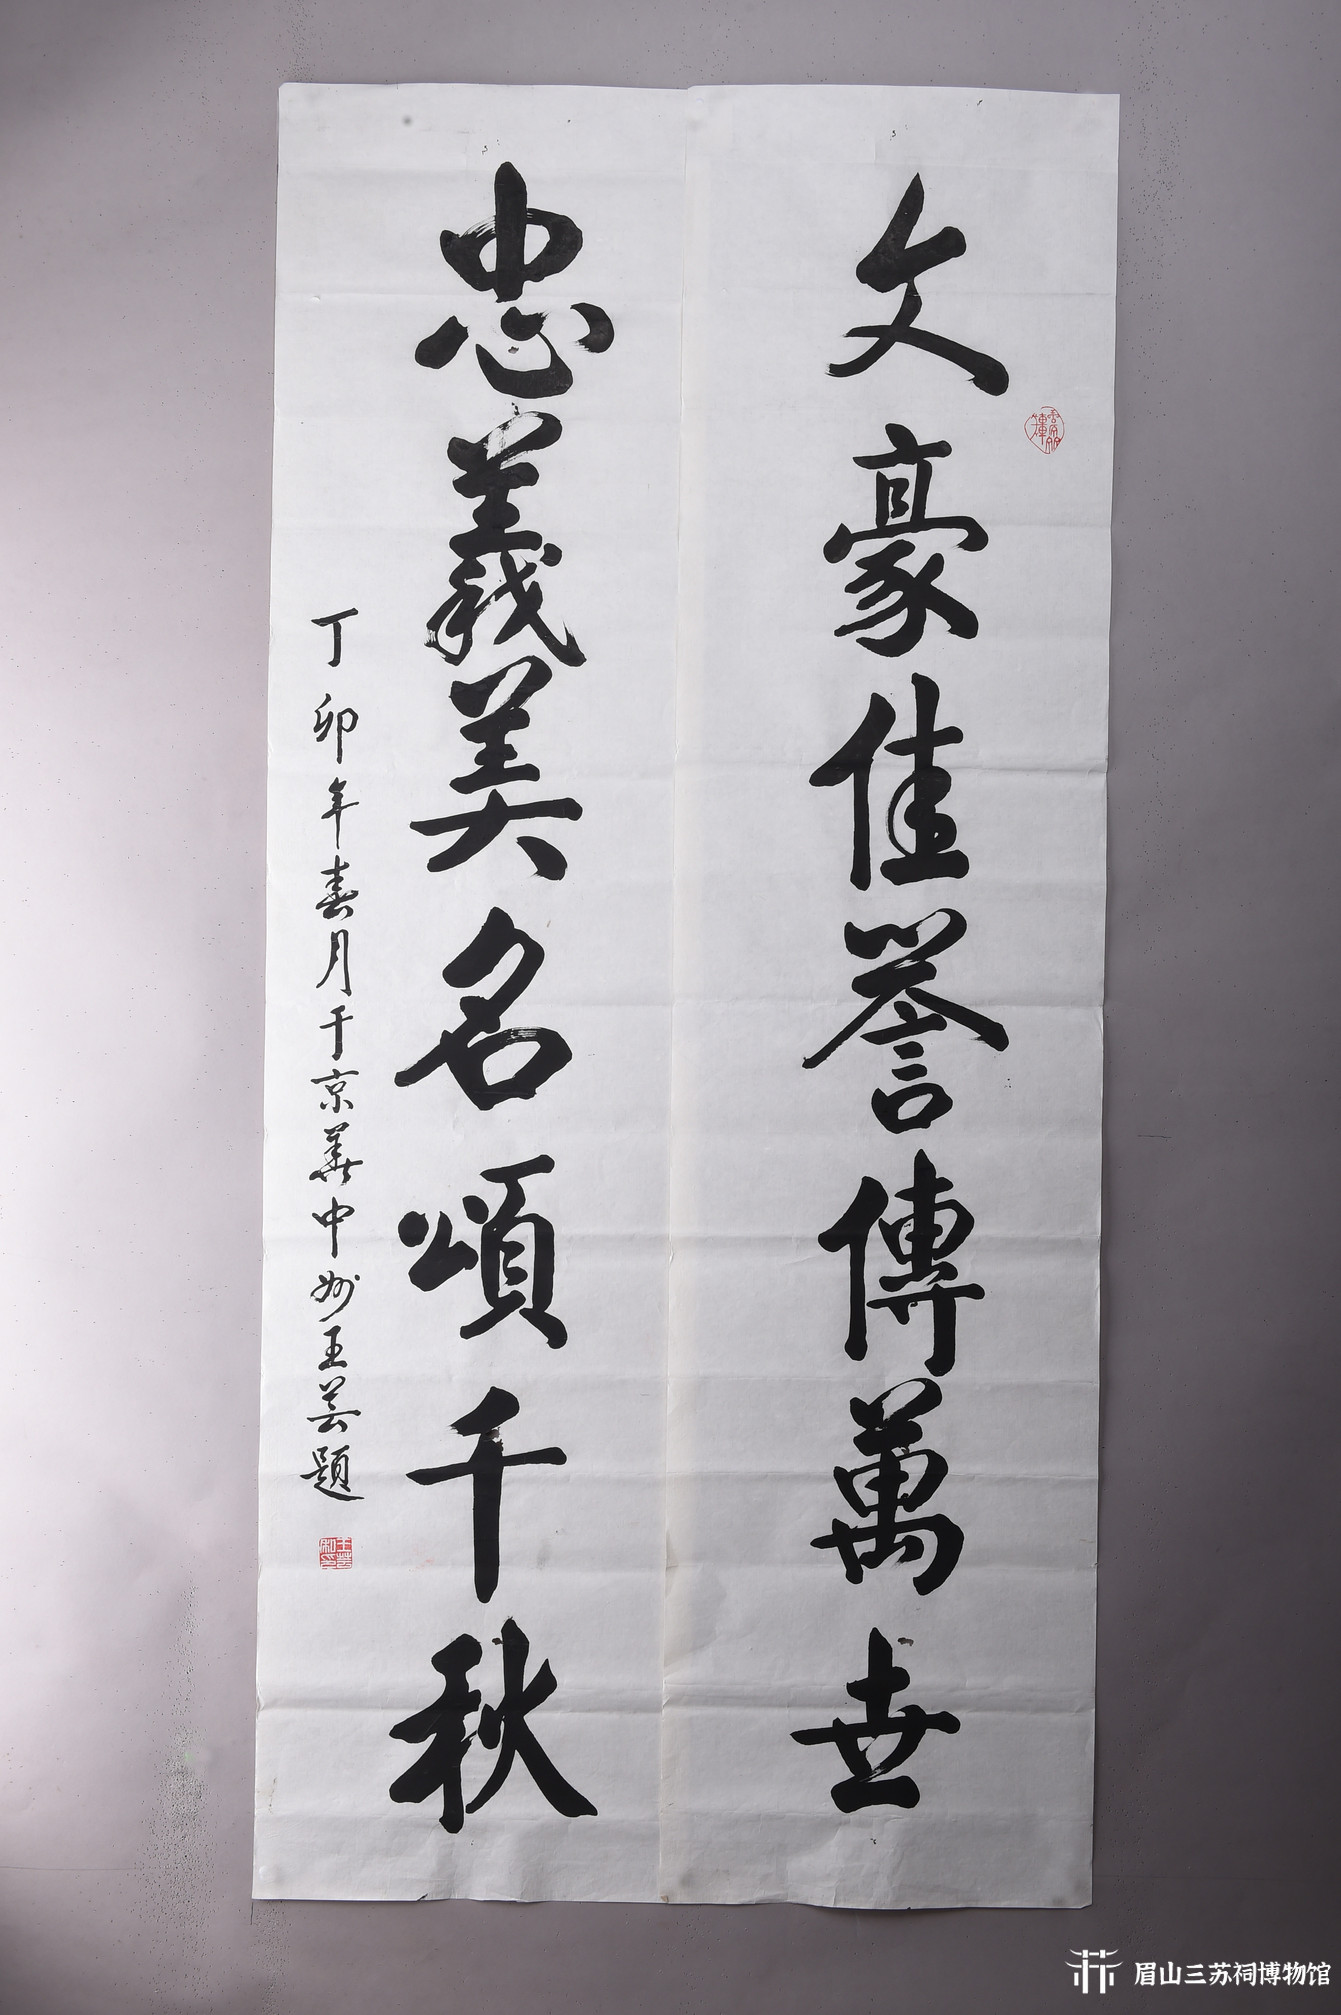 文豪佳誉傳萬世
忠義美名頌千秋
丁卯年春月于京華中州王芸題
眉山三苏祠博物馆